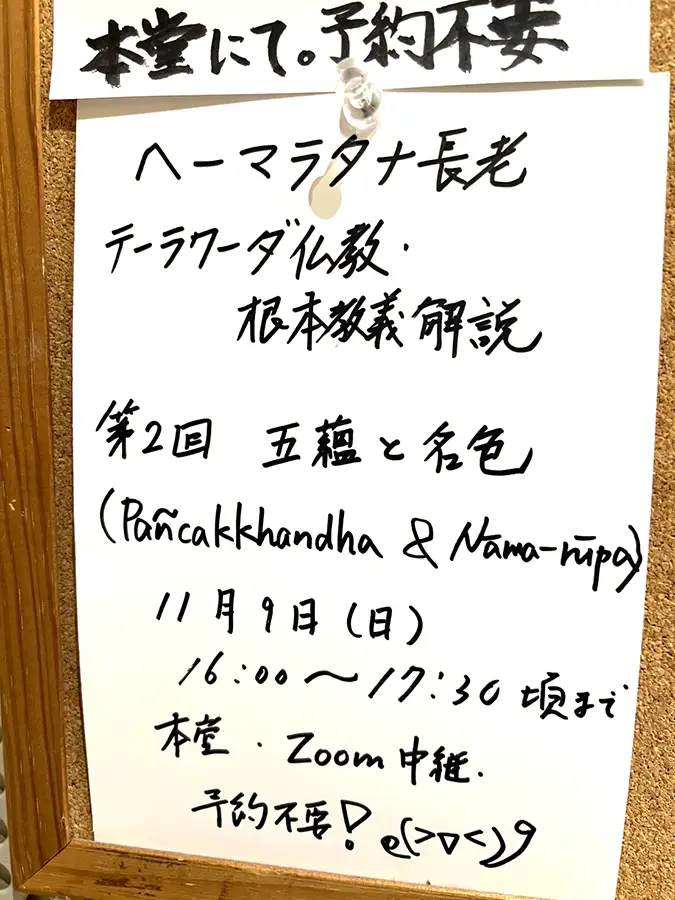 本堂にて。予約不要
ヘーマラタナ長老
テーラワーダ仏教・
根本教義解説
第2回 五蘊と名色
(Pañcakkhandha & Nāma-rūpa)
11月9日(日)
16:00〜17:30頃まで
本堂・Zoom中継.
予約不要! e(>▽<)9